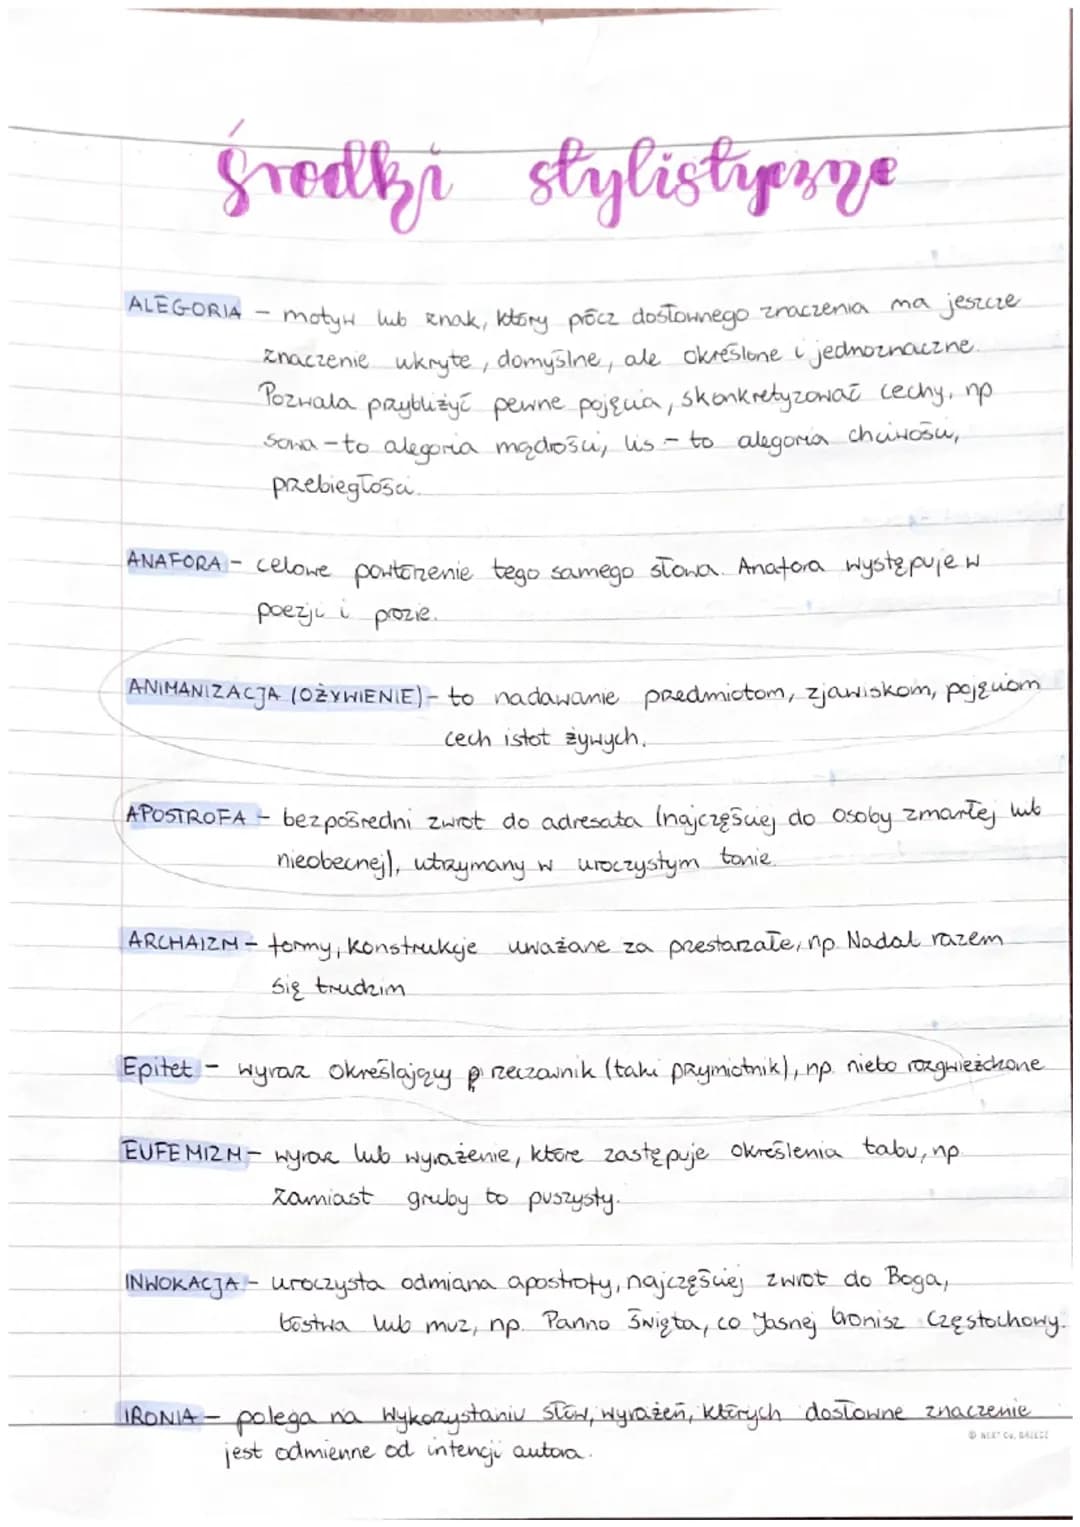 środki stylistyczne
ALEGORIA - motyw lub znak, który prócz dosłownego znaczenia ma jeszcze
znaczenie ukryte, domyślne, ale określone i jednoznaczne.
Pozwala przybliżyć pewne pojęcia, skonkretyzować cechy, np
sowa - to alegoria mądrości, lis - to alegoria chciwości,
przebiegłości.
ANAFORA - celowe powtórzenie tego samego słowa. Anafora występuje w
poezji i prozie.
ANIMANIZACJA (OŻYWIENIE) - to nadawanie przedmiotom, zjawiskom, pojęciom
cech istot żywych.
APOSTROFA - bezpośredni zwrot do adresata (najczęściej do osoby zmarłej lub
nieobecnej), utrzymany w uroczystym tonie.
ARCHAIZM - formy, konstrukcje uważane za przestarzałe, np. Nadal razem
się trudzim
Epitet - wyraz określający rzeczownik (taki przymiotnik), np. niebo rozgwieżdżone
EUFEMIZM - wyraz lub wyrażenie, które zastępuje określenia tabu, np.
zamiast gruby to puszysty.
INWOKACJA - uroczysta odmiana apostrofy, najczęściej zwrot do Boga,
bóstwa lub muz, np. Panno Święta, co Jasnej bronisz Częstochowy.
IRONIA - polega na wykorzystaniu słów, wyrażeń, których dosłowne znaczenie
jest odmienne od intencji autora.